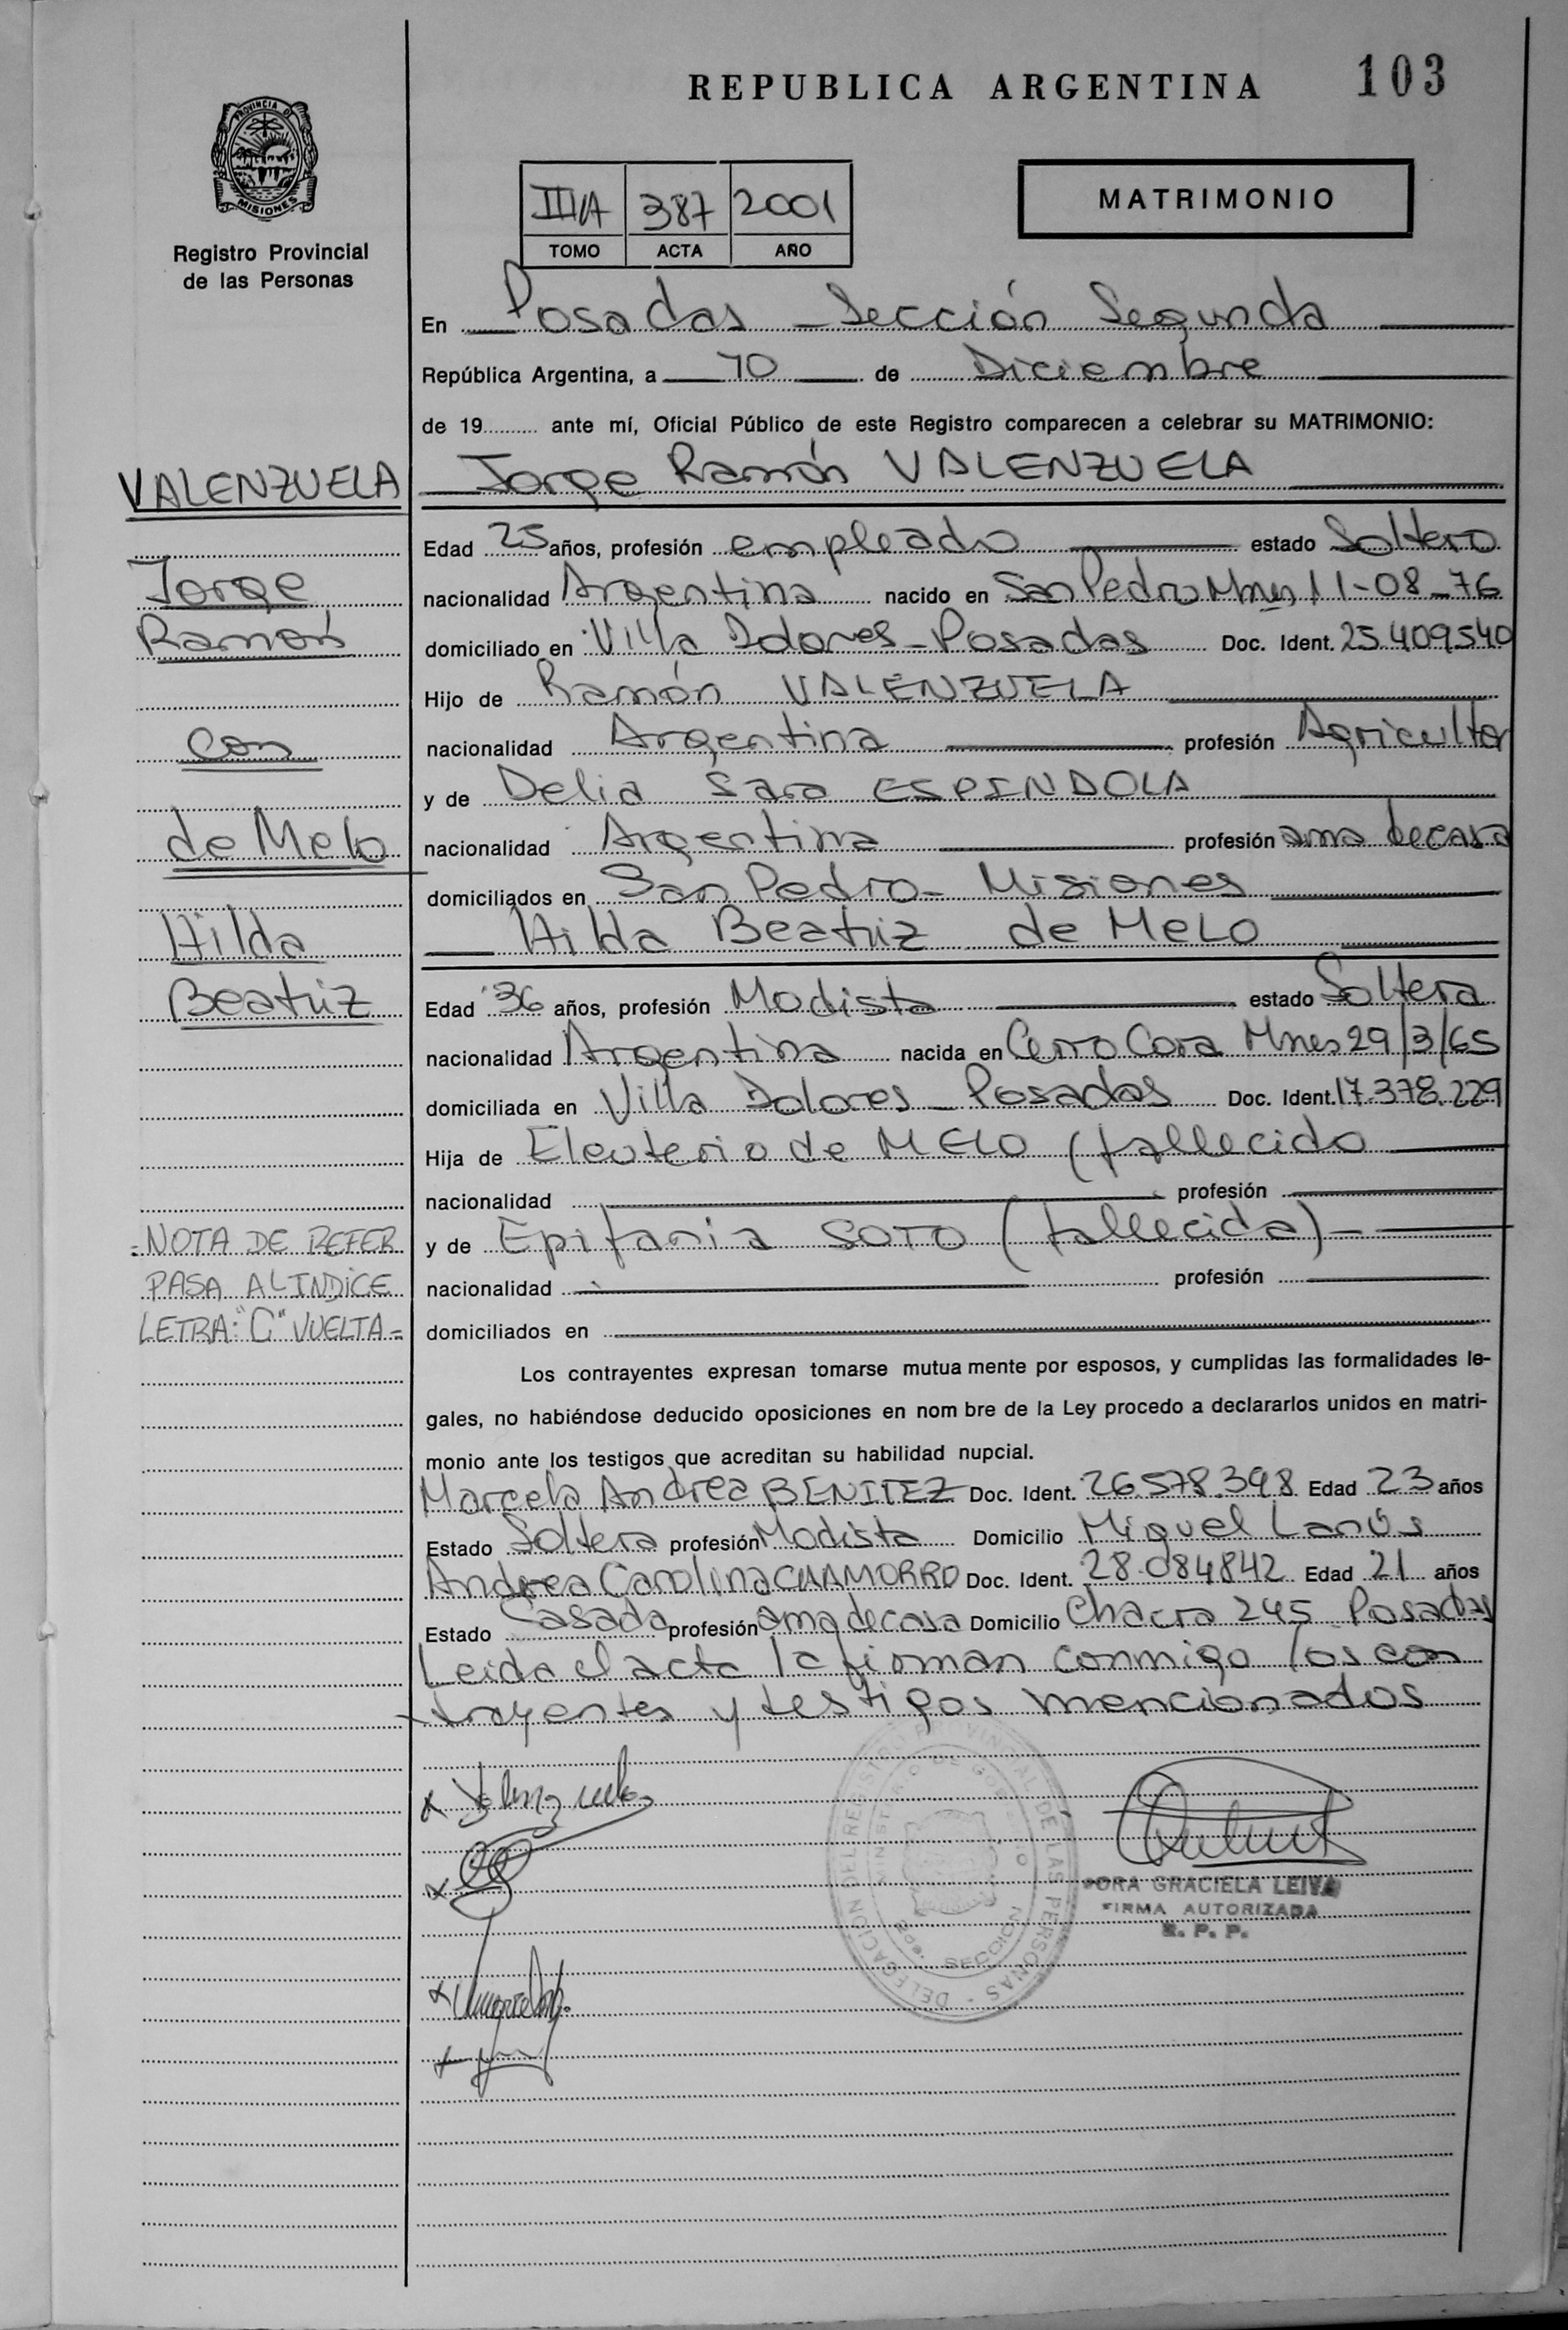 REPUBLICA ARGENTINA 103
PROVINCIA DE
MISIONES
Registro Provincial
de las Personas
III/A 387 2001
TOMO ACTA AÑO
MATRIMONIO
En Posadas - Sección Segunda
República Argentina, a 10 de Diciembre
de 19 ante mí, Oficial Público de este Registro comparecen a celebrar su MATRIMONIO:
VALENZUELA
Jorge
Ramón
con
de Melo
Hilda
Beatriz
- NOTA DE REFER
PASA AL INDICE
LETRA: "C" VUELTA =
Jorge Ramón VALENZUELA
Edad 25 años, profesión empleado estado Soltero
nacionalidad Argentina nacido en San Pedro Mnes 11-08-76
domiciliado en Villa Dolores - Posadas Doc. Ident. 25.409.540
Hijo de Ramón VALENZUELA
nacionalidad Argentina profesión Agricultor
y de Delia Sara ESPINDOLA
nacionalidad Argentina profesión ama de casa
domiciliados en San Pedro - Misiones
Hilda Beatriz de MELO
Edad 36 años, profesión Modista estado Soltera
nacionalidad Argentina nacida en Cerro Cora Mnes 29/3/65
domiciliada en Villa Dolores - Posadas Doc. Ident. 17.378.229
Hija de Eleuterio de MELO (fallecido
nacionalidad profesión
y de Epifania SOTO (fallecida) -
nacionalidad profesión
domiciliados en
Los contrayentes expresan tomarse mutua mente por esposos, y cumplidas las formalidades le-
gales, no habiéndose deducido oposiciones en nom bre de la Ley procedo a declararlos unidos en matri-
monio ante los testigos que acreditan su habilidad nupcial.
Marcela Andrea BENITEZ Doc. Ident. 26.578.398 Edad 23 años
Estado Soltera profesión Modista Domicilio Miguel Lanús
Andrea Carolina CHAMORRO Doc. Ident. 28.084842 Edad 21 años
Estado Casada profesión ama de casa Domicilio Chacra 245 Posadas
Leida el acta la firman conmigo los con
trayentes y testigos mencionados
DELEGACIÓN DEL REGISTRO PROVINCIAL DE LAS PERSONAS -
MINISTERIO DE GOBIERNO
SECCION
DORA GRACIELA LEIVA
FIRMA AUTORIZADA
R. P. P.